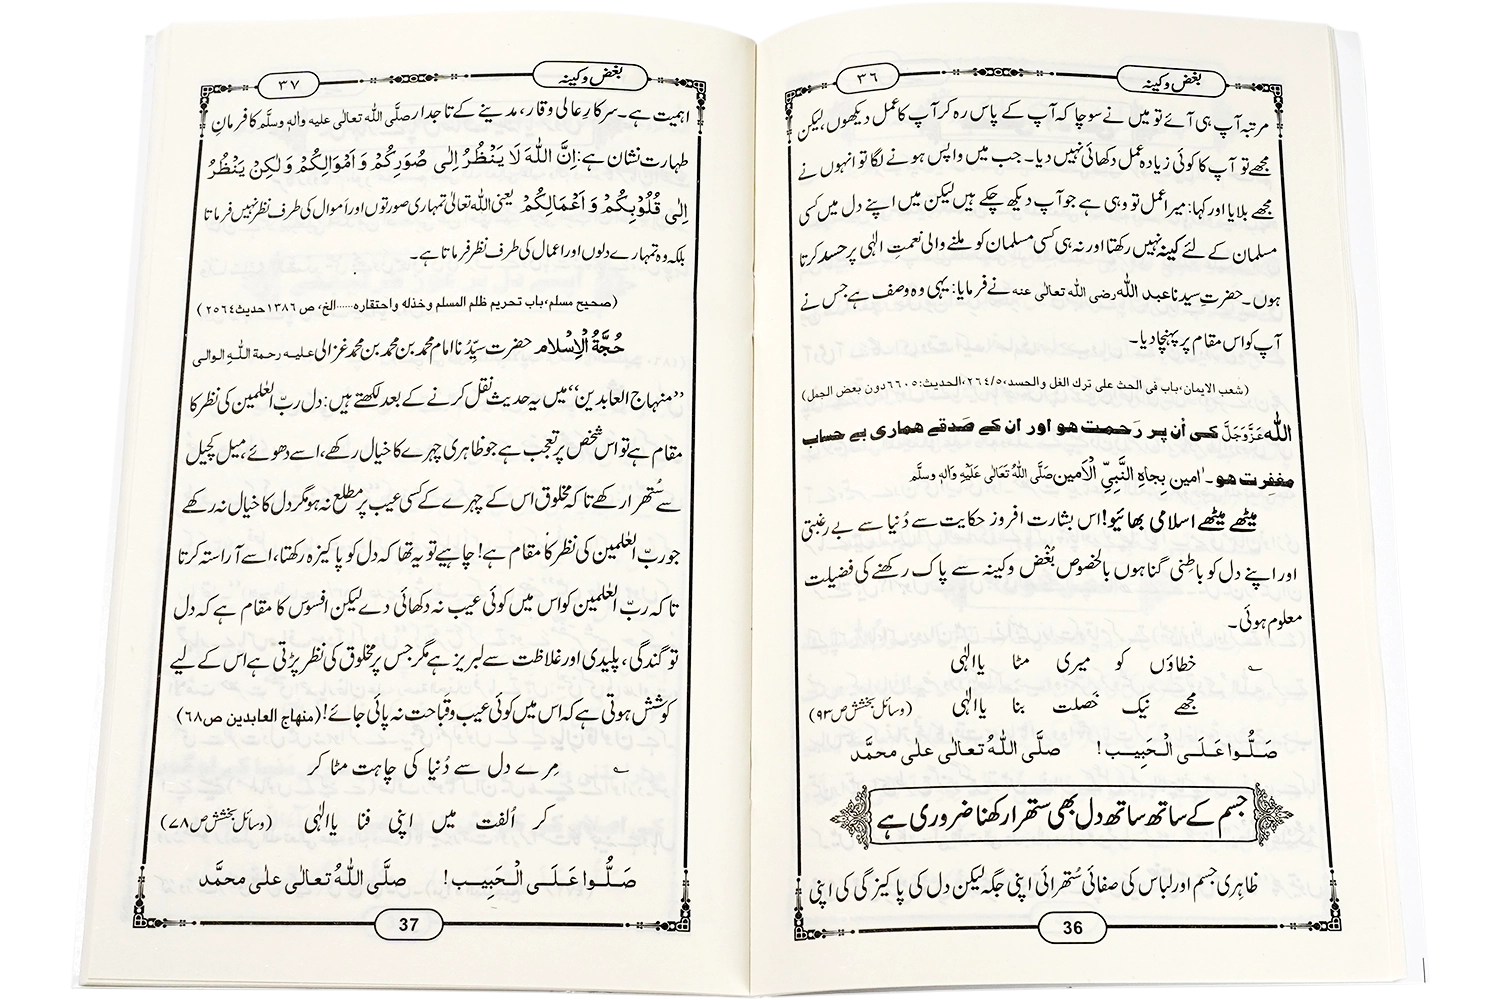 بُغض و کینہ
٣٦
مرتبہ آپ ہی آئے تو میں نے سوچا کہ آپ کے پاس رہ کر آپ کا عمل دیکھوں، لیکن
مجھے تو آپ کا کوئی زیادہ عمل دکھائی نہیں دیا۔ جب میں واپس ہونے لگا تو انہوں نے
مجھے بلایا اور کہا: میرا عمل تو وہی ہے جو آپ دیکھ چکے ہیں لیکن میں اپنے دل میں کسی
مسلمان کے لئے کینہ نہیں رکھتا اور نہ ہی کسی مسلمان کو ملنے والی نعمتِ الٰہی پر حسد کرتا
ہوں۔ حضرتِ سیدنا عبد اللہ رضی اللہ تعالی عنہ نے فرمایا: یہی وہ وصف ہے جس نے
آپ کو اس مقام پر پہنچا دیا۔
(شعب الایمان، باب فی الحث علی ترک الغل والحسد، ٢٦٤/٥، الحدیث: ٦٦٠٥ دون بعض الجمل)
اللہ عَزَّوَجَلَّ کی اُن پر رَحمت ہو اور ان کے صَدقے ہماری بے حساب
مغفِرت ہو۔ اٰمین بِجاہِ النَّبِیِّ الْاَمین صَلَّی اللہُ تَعَالٰی عَلَیْہِ وَاٰلہٖ وسلَّم
میٹھے میٹھے اسلامی بھائیو! اس بشارت افروز حکایت سے دُنیا سے بے رغبتی
اور اپنے دل کو باطِنی گناہوں بالخصوص بُغْض وکینہ سے پاک رکھنے کی فضیلت
معلوم ہوئی۔
؎ خطاؤں کو میری مٹا یاالٰہی
مجھے نیک خَصلت بنا یاالٰہی (وسائلِ بخشش ص٩٣)
صَلُّوا عَلَی الْحَبِیب! صلَّی اللہُ تعالٰی علٰی محمَّد
جسم کے ساتھ ساتھ دل بھی ستھرا رکھنا ضروری ہے
ظاہِری جسم اور لباس کی صفائی سُتھرائی اپنی جگہ لیکن دل کی پاکیزگی کی اپنی
36
بُغض و کینہ
٣٧
اہمیت ہے۔ سرکارِ عالی وقار، مدینے کے تاجدار صلَّی اللہ تعالٰی علیہ واٰلہٖ وسلَّم کا فرمانِ
طہارت نشان ہے: اِنَّ اللّٰہَ لَا یَنْظُرُ اِلٰی صُوَرِکُمْ وَ اَمْوَالِکُمْ وَ لٰکِنْ یَنْظُرُ
اِلٰی قُلُوْبِکُمْ وَ اَعْمَالِکُمْ یعنی اللہ تعالیٰ تمہاری صورتوں اور اَموال کی طرف نظر نہیں فرماتا
بلکہ وہ تمہارے دلوں اور اعمال کی طرف نظر فرماتا ہے۔
(صحیح مسلم، باب تحریم ظلم المسلم وخذلہ واحتقارہ......الخ، ص ١٣٨٦ حدیث ٢٥٦٤)
حُجَّۃُ الْاِسْلام حضرت سیِّدُنا امام محمد بن محمد بن محمد غزالی علیہ رحمۃ اللہ الوالی
”منہاج العابدین“ میں یہ حدیث نقل کرنے کے بعد لکھتے ہیں: دل ربّ العٰلمین کی نظر کا
مقام ہے تو اس شخص پر تعجب ہے جو ظاہری چہرے کا خیال رکھے، اسے دھوئے، میل کچیل
سے سُتھرا رکھے تاکہ مخلوق اس کے چہرے کے کسی عیب پر مطلع نہ ہو مگر دل کا خیال نہ رکھے
جو ربّ العٰلمین کی نظر کا مقام ہے! چاہیے تو یہ تھا کہ دل کو پاکیزہ رکھتا، اسے آراستہ کرتا
تاکہ ربّ العٰلمین کو اس میں کوئی عیب نہ دکھائی دے لیکن افسوس کا مقام ہے کہ دل
تو گندگی، پلیدی اور غلاظت سے لبریز ہے مگر جس پر مخلوق کی نظر پڑتی ہے اس کے لیے
کوشش ہوتی ہے کہ اس میں کوئی عیب و قباحت نہ پائی جائے! (منہاج العابدین ص٦٨)
؎ مِرے دل سے دُنیا کی چاہت مٹا کر
کر اُلفت میں اپنی فنا یاالٰہی (وسائلِ بخشش ص٧٨)
صَلُّوا عَلَی الْحَبِیب! صلَّی اللہُ تعالٰی علٰی محمَّد
37